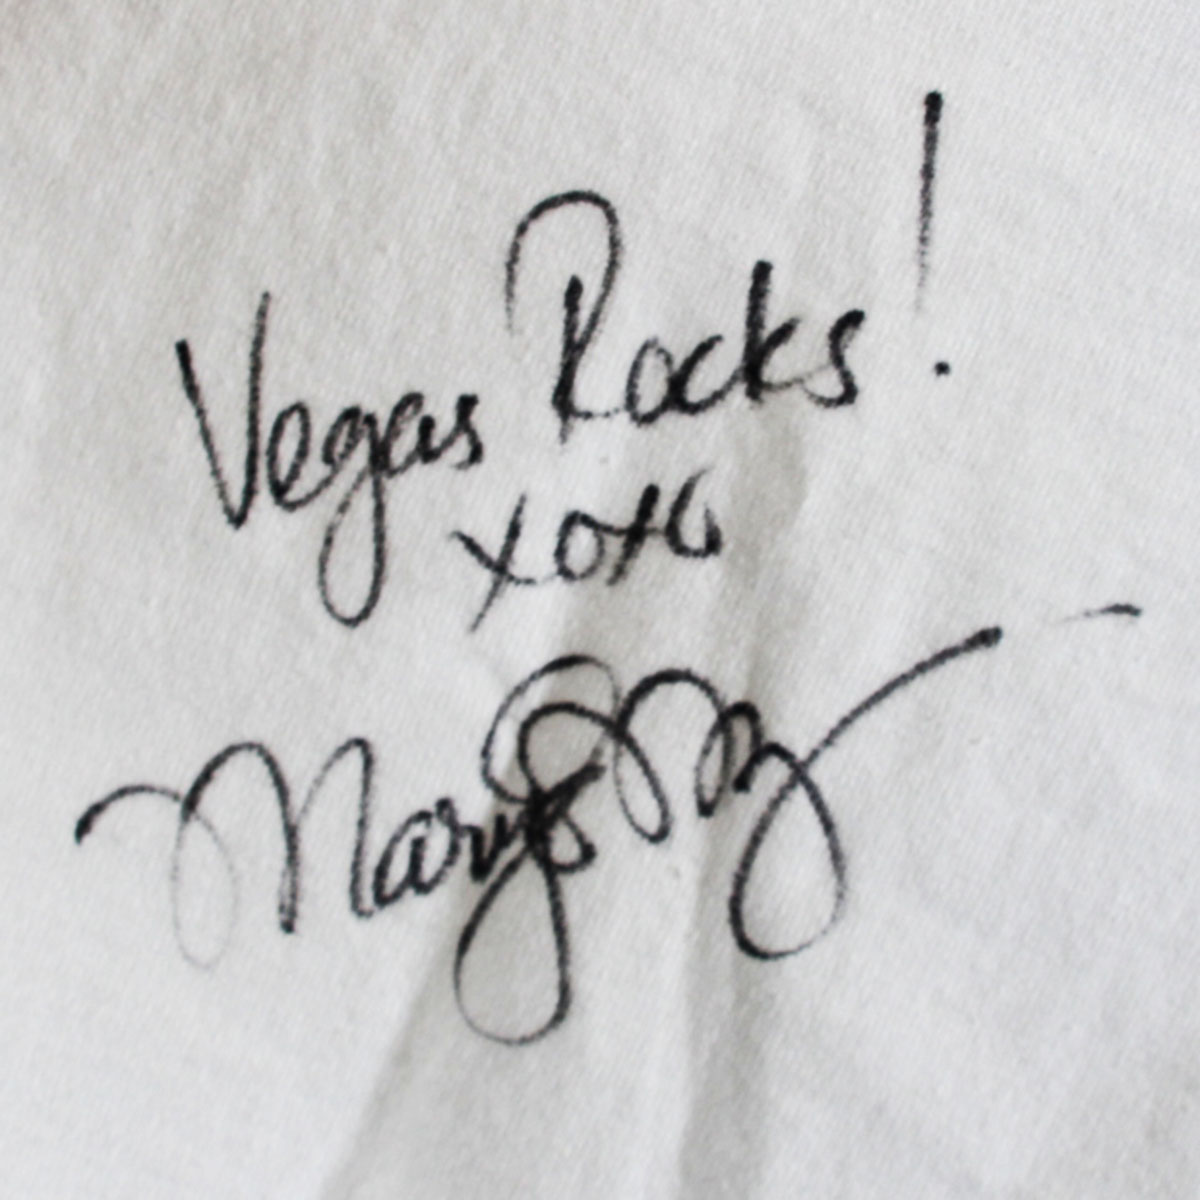 Vegas Rocks!
xoxo
Mary